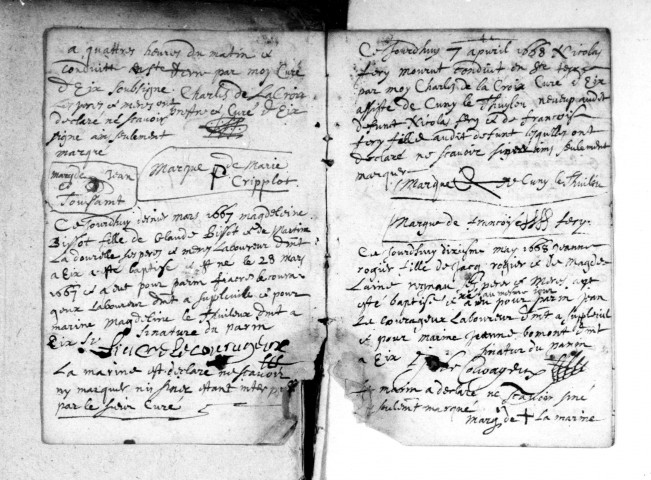 a quattres heures du matin et
conduitte en ste terre par moy Curé
d'Eix soubsigne Charles de La Croix
Les pere et mere ont prestre et Curé d'Eix
declare ne scavoir
signe ains seulement
marque
marque de Jean
Toussaint
Marque de Marie
Cripplot
Ce Jourdhuy mars 1667 magdeleine
Bissot fille de Claude Bissot et de Martine
La ses pere et mere Laboureur dmt
a Eix a esté baptisé et né le 28 mars
1667 et a eut pour parin fiacre le coura
geux Laboureur dmt a et pour
marine Magdeleine le Thuileux dmt a
Eix sinature du parin
fiacre le courageux
La marine est declare ne scavoir
ny marquer ny siner estant
par le sieur Curé
Ce Jourdhuy 7 apvril 1668 Nicolas
fery mourut conduit en ste terre
par moy Charles de la Croix Curé d'Eix
assisté de Cuny le Thuylou neveu audit
defunt Nicolas fery et de francoise
fery fille audit defunt lesquels ont
declare ne scavoir siner ains seulement
marquer
Marque de Cuny le Thuilou
Marque de francoise fery
Ce Jourdhuy dixisme may 1668 Jeanne
roquier fille de Jacq roquier et de Magde
Laine ses pere et mere a
esté baptisé et a eu pour parin Jean
Le courageux Laboureur dmt a
et pour marine Jeanne bomont dmt
a Eix sinature du parin
Le marine a declare ne scavoir siné
seulement marque
marq de + La marine